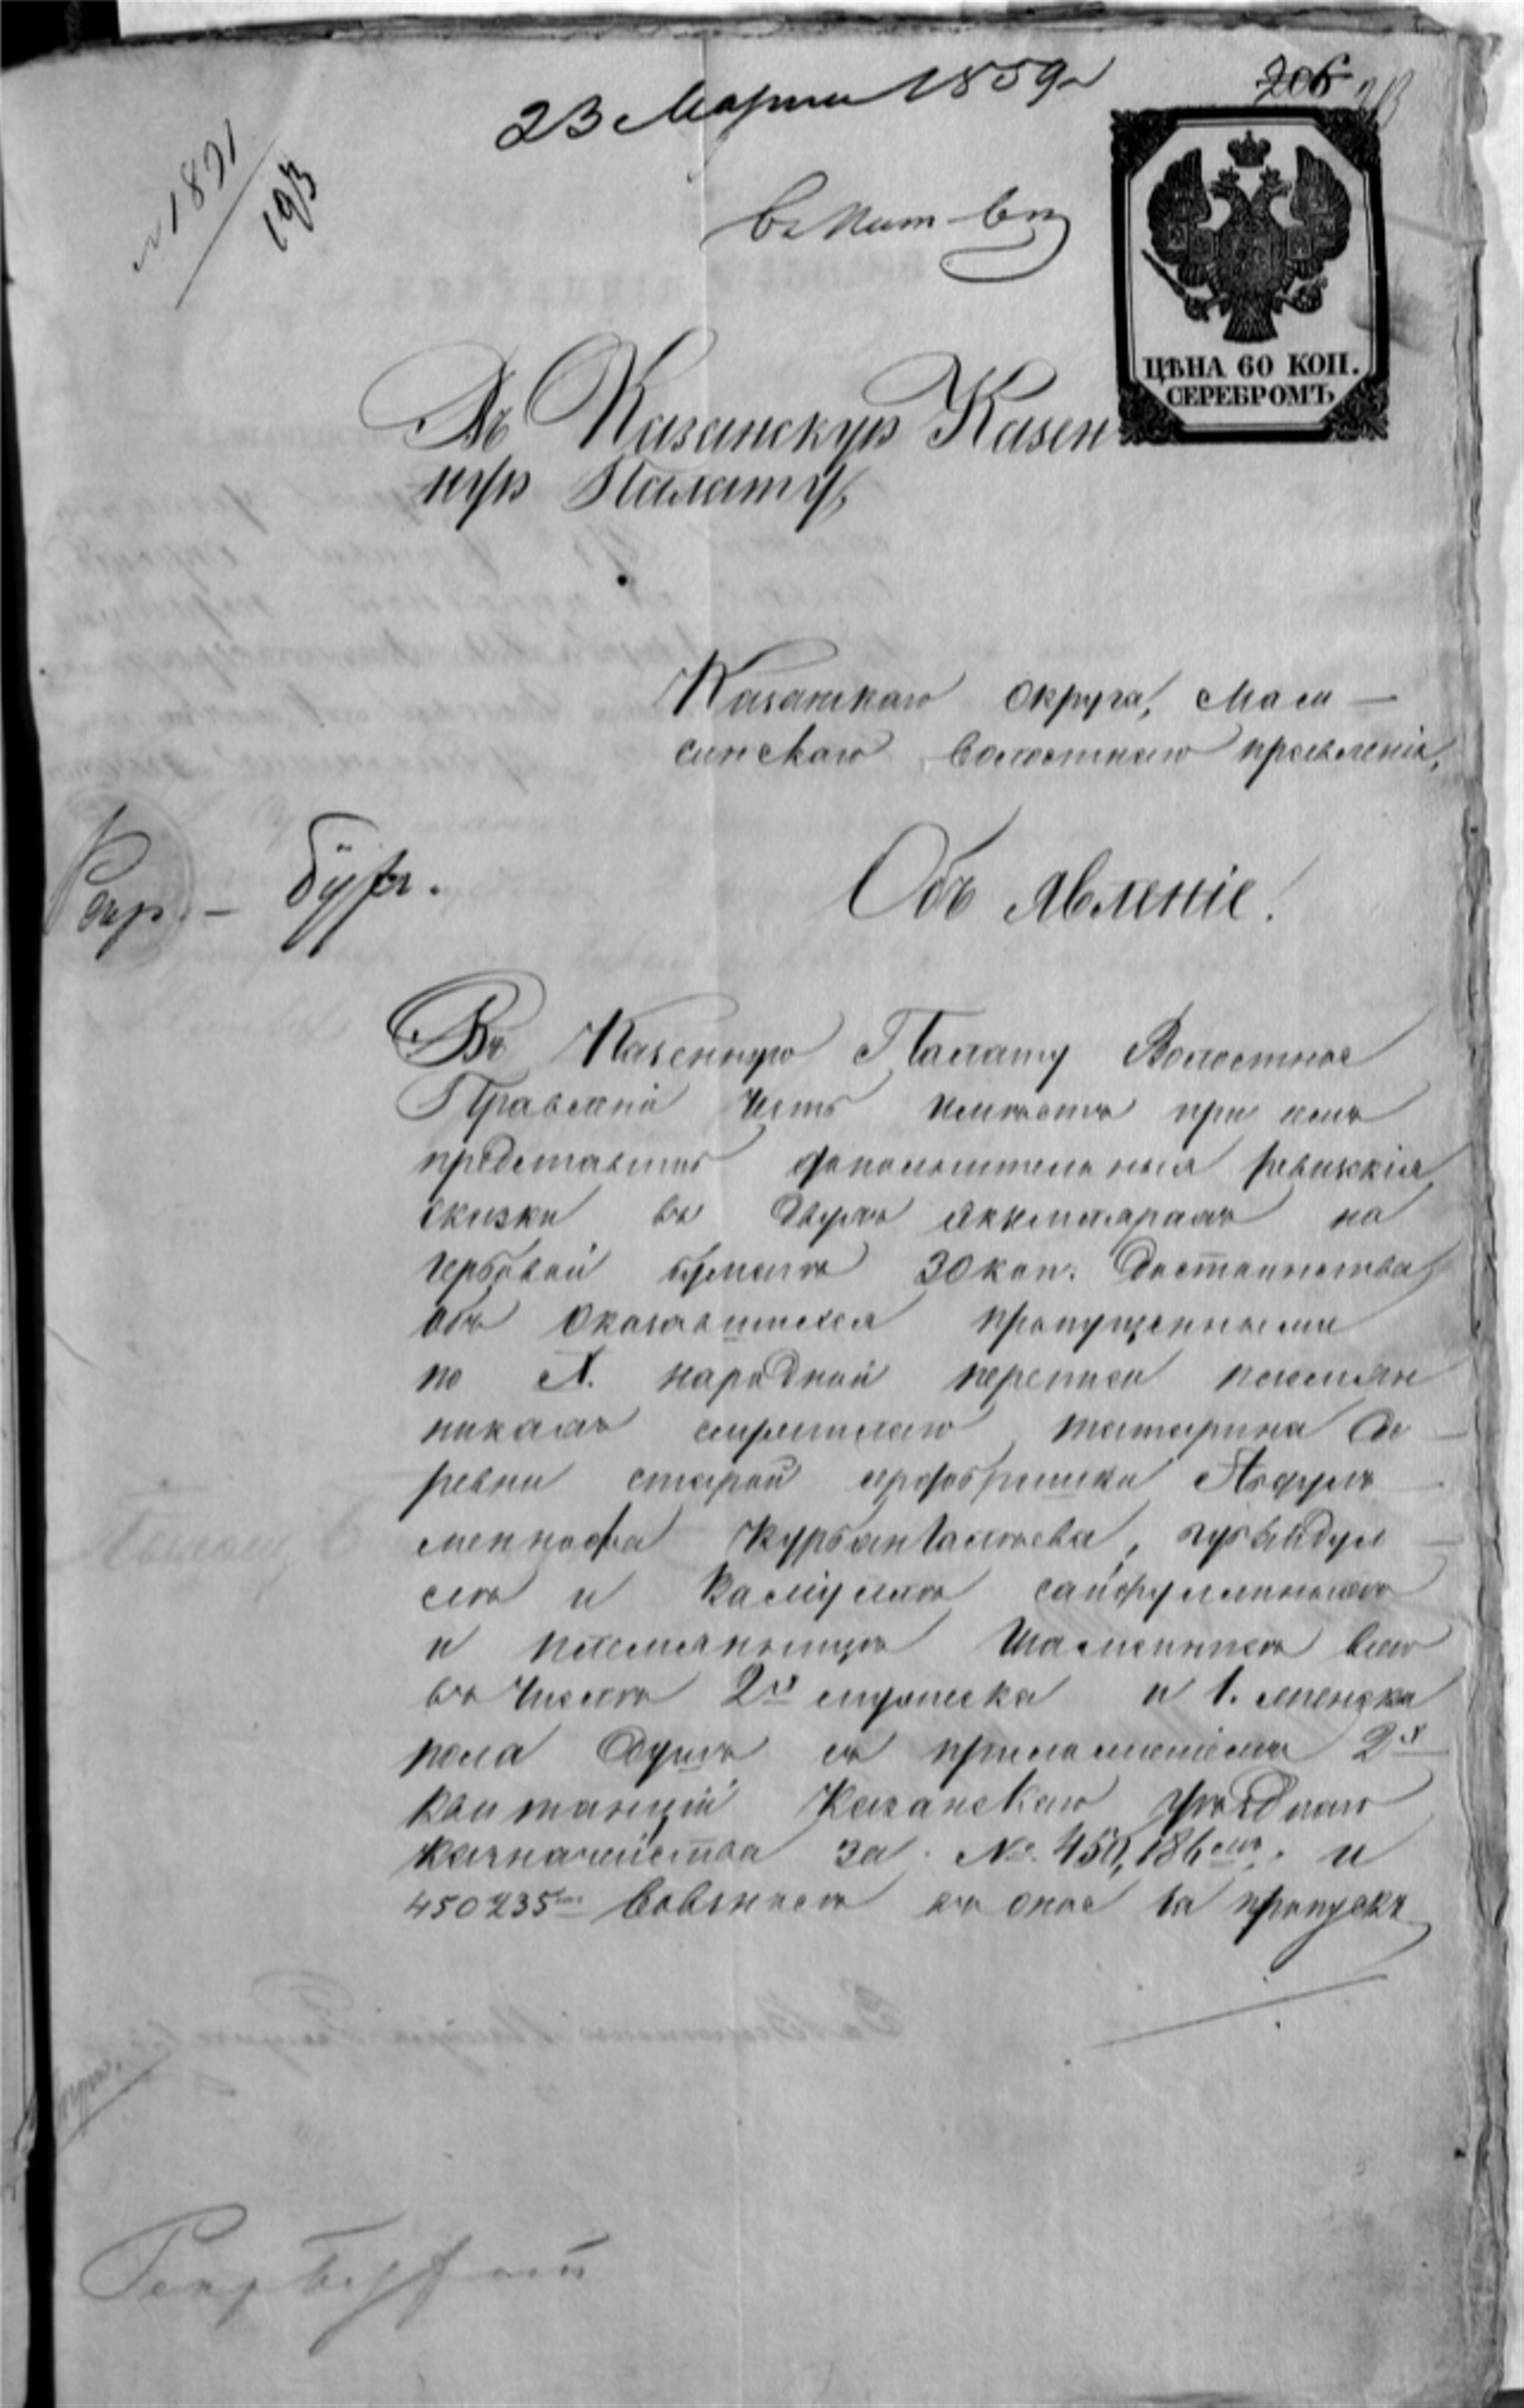 23 Марта 1859 г
206
№ 1891
193
ЦѢНА 60 КОП.
СЕРЕБРОМЪ
Въ Казанскую Казен
ную Палату,
Казанскаго Округа, Мам
синскаго Волостнаго правленія,
Объявленіе!
Въ Казенную Палату Волостное
Правленіе честь имѣетъ при семъ
представить дополнительныя ревизскія
сказки въ двухъ экземплярахъ на
гербовой бумагѣ 30 коп. достоинства
объ оказавшихся пропущенными
по X. народной переписи племян
никахъ татарина де
ревни старой
Курбангалѣева,
и сайфуллиныхъ
и племянницѣ всего
въ числѣ 2х мужеска и 1. женска
пола душъ съ приложеніемъ 2х
квитанцій Казанскаго уѣзднаго
казначейства за № и
450235 въ оное за пропускъ